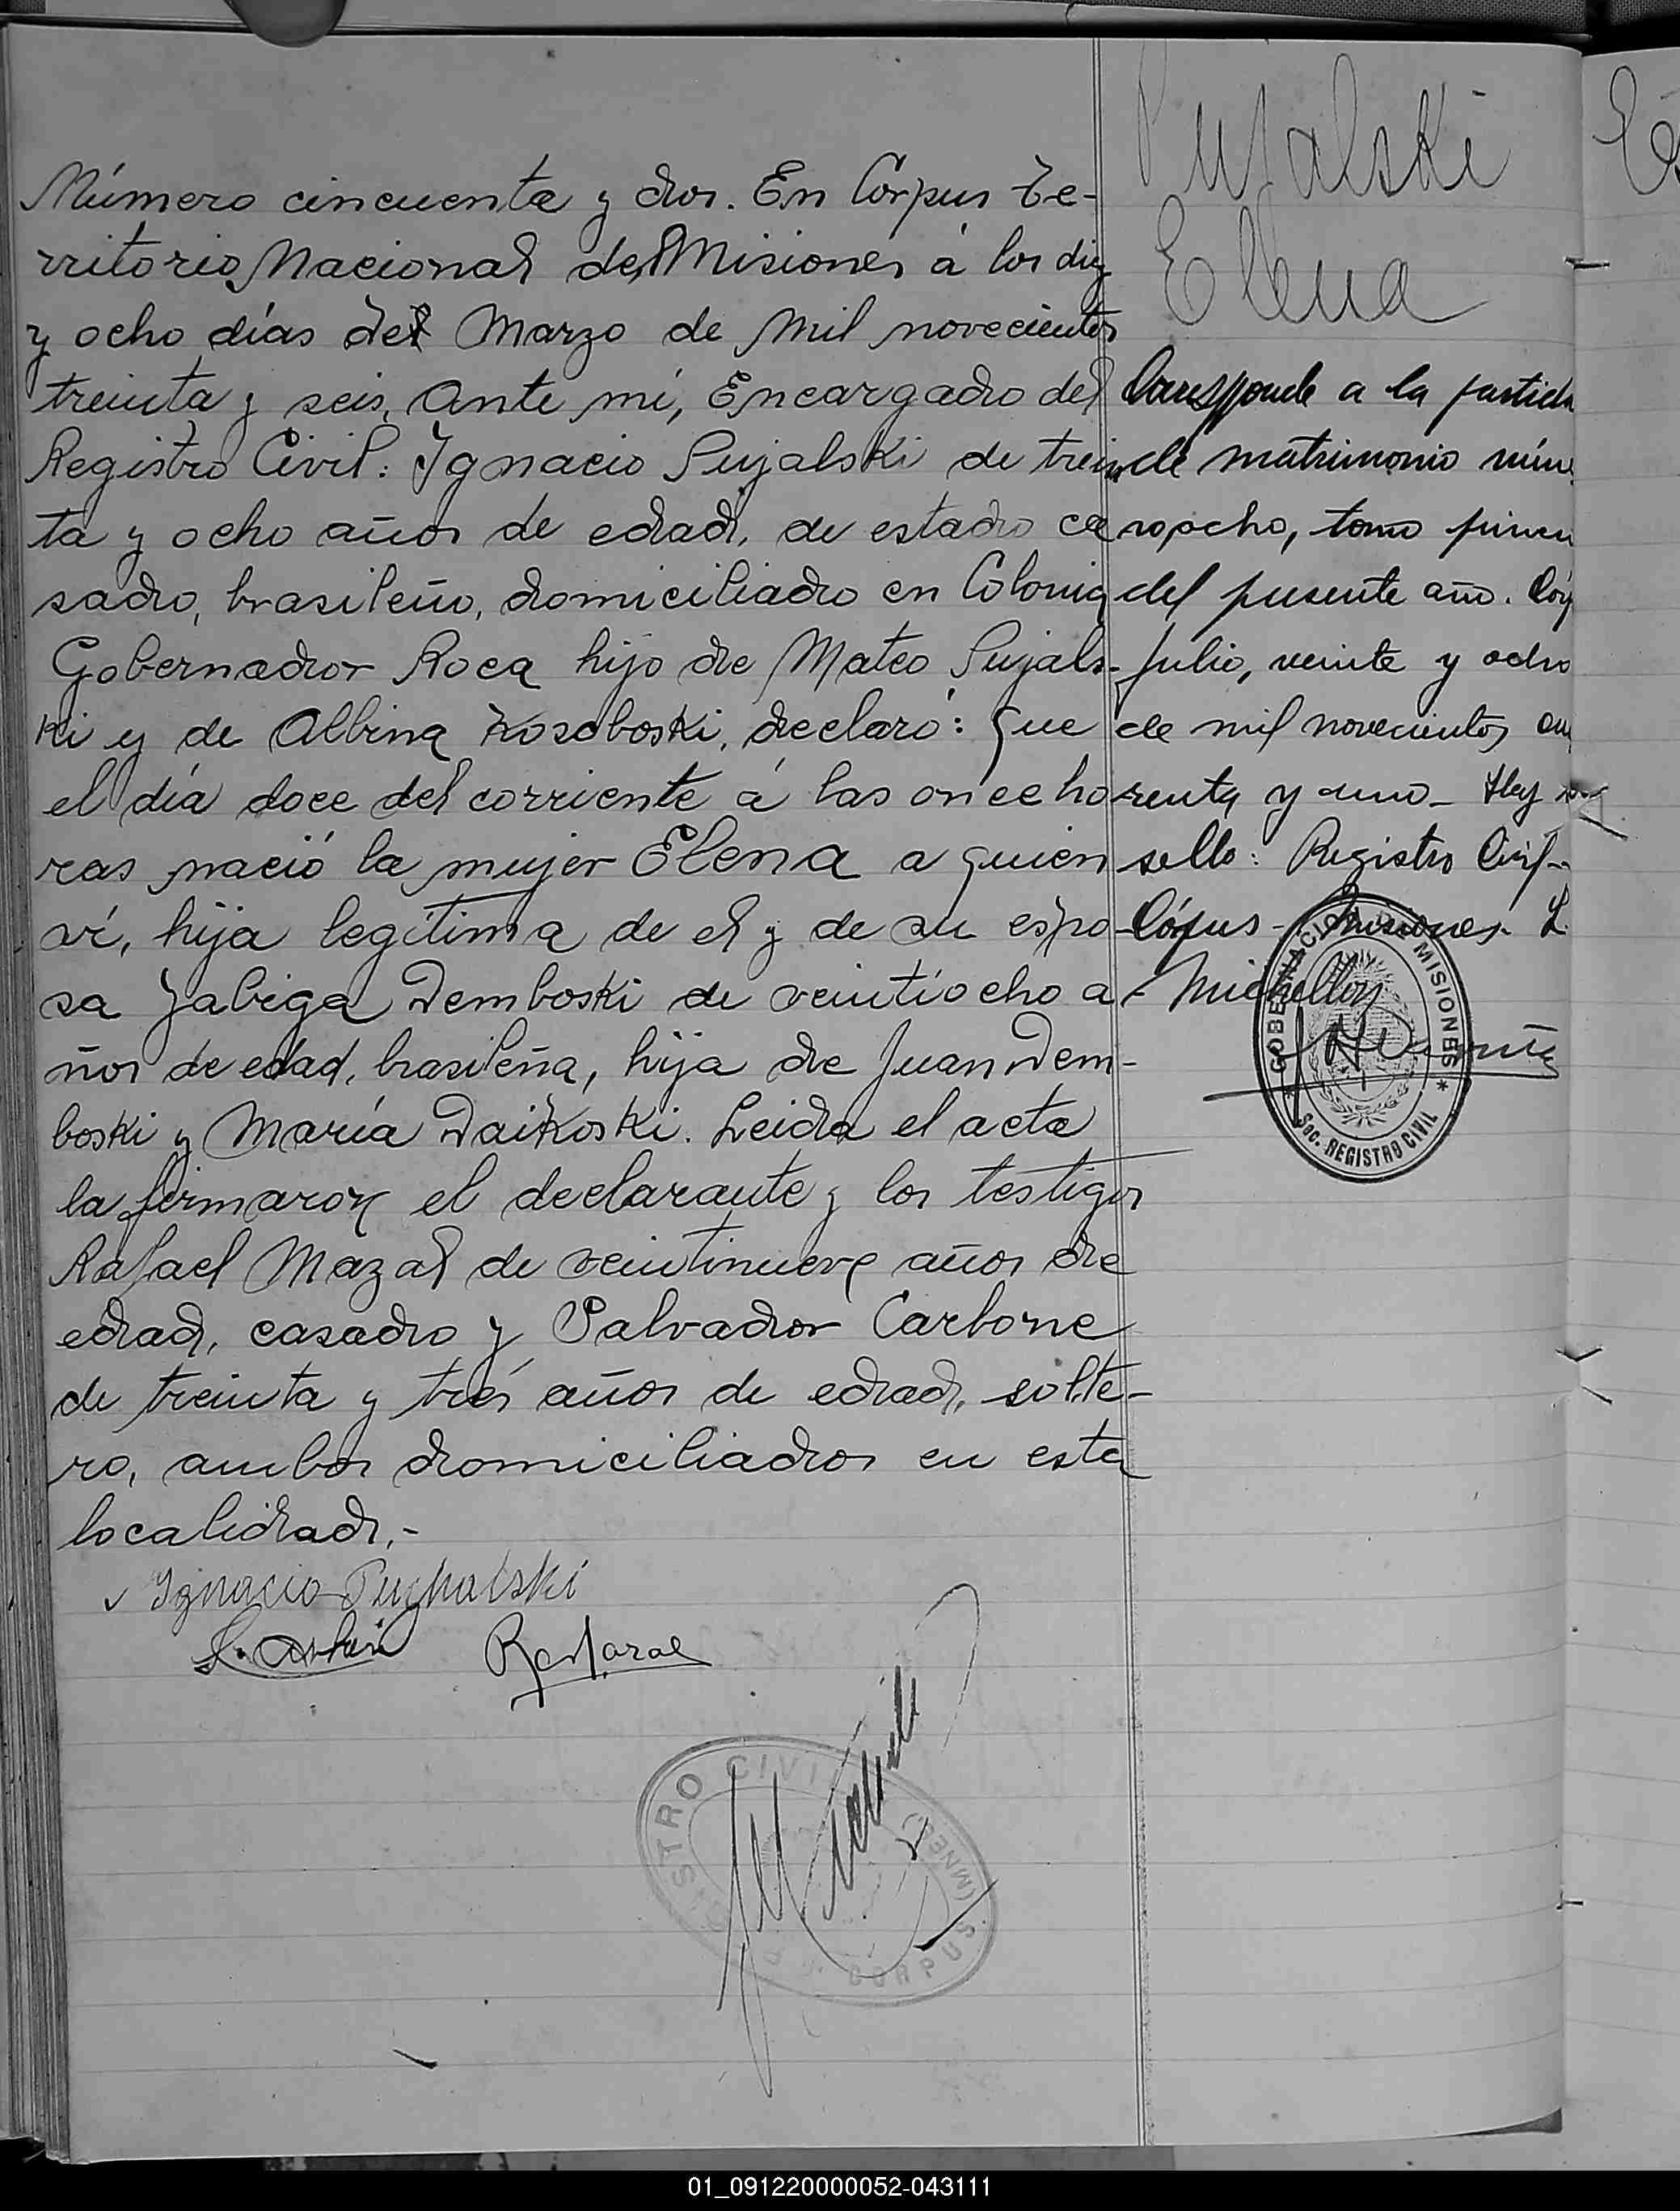 Número cincuenta y dos. En Corpus Te-
rritorio Nacional de Misiones á los diez
y ocho días del Marzo de Mil novecientos
treinta y seis, Ante mí, Encargado del
Registro Civil: Ignacio Pujalski de trein
ta y ocho años de edad, de estado ca
sado, brasileño, domiciliado en Colonia
Gobernador Roca hijo de Mateo Pujals-
ki y de Albina Kosoboski, declaró: Que
el día doce del corriente á las once ho
ras nació la mujer Elena a quien
ví, hija legítima de el y de su espo-
sa Jabiga Demboski de veintiocho a-
ños de edad, brasileña, hija de Juan Dem-
boski y María Daikoski. Leida el acta
la firmaron el declarante y los testigos
Rafael Mazal de veintinueve años de
edad, casado y Salvador Carbone
de treinta y tres años de edad, solte-
ro, ambos domiciliados en esta
localidad.-
Ignacio Puchalski
Pujalski
Elena
Corresponde a la partida
de matrimonio núme
ro ocho, tomo primer
del presente año. Cor
Julio, veinte y ocho
de mil novecientos cua
renta y uno - Hay un
sello: Registro Civil-
Córpus - Misiones. L.
Michellon
GOBERNACION DE MISIONES
SOC. REGISTRO CIVIL
REGISTRO CIVIL
CORPUS (MNES.)
01_091220000052-043111